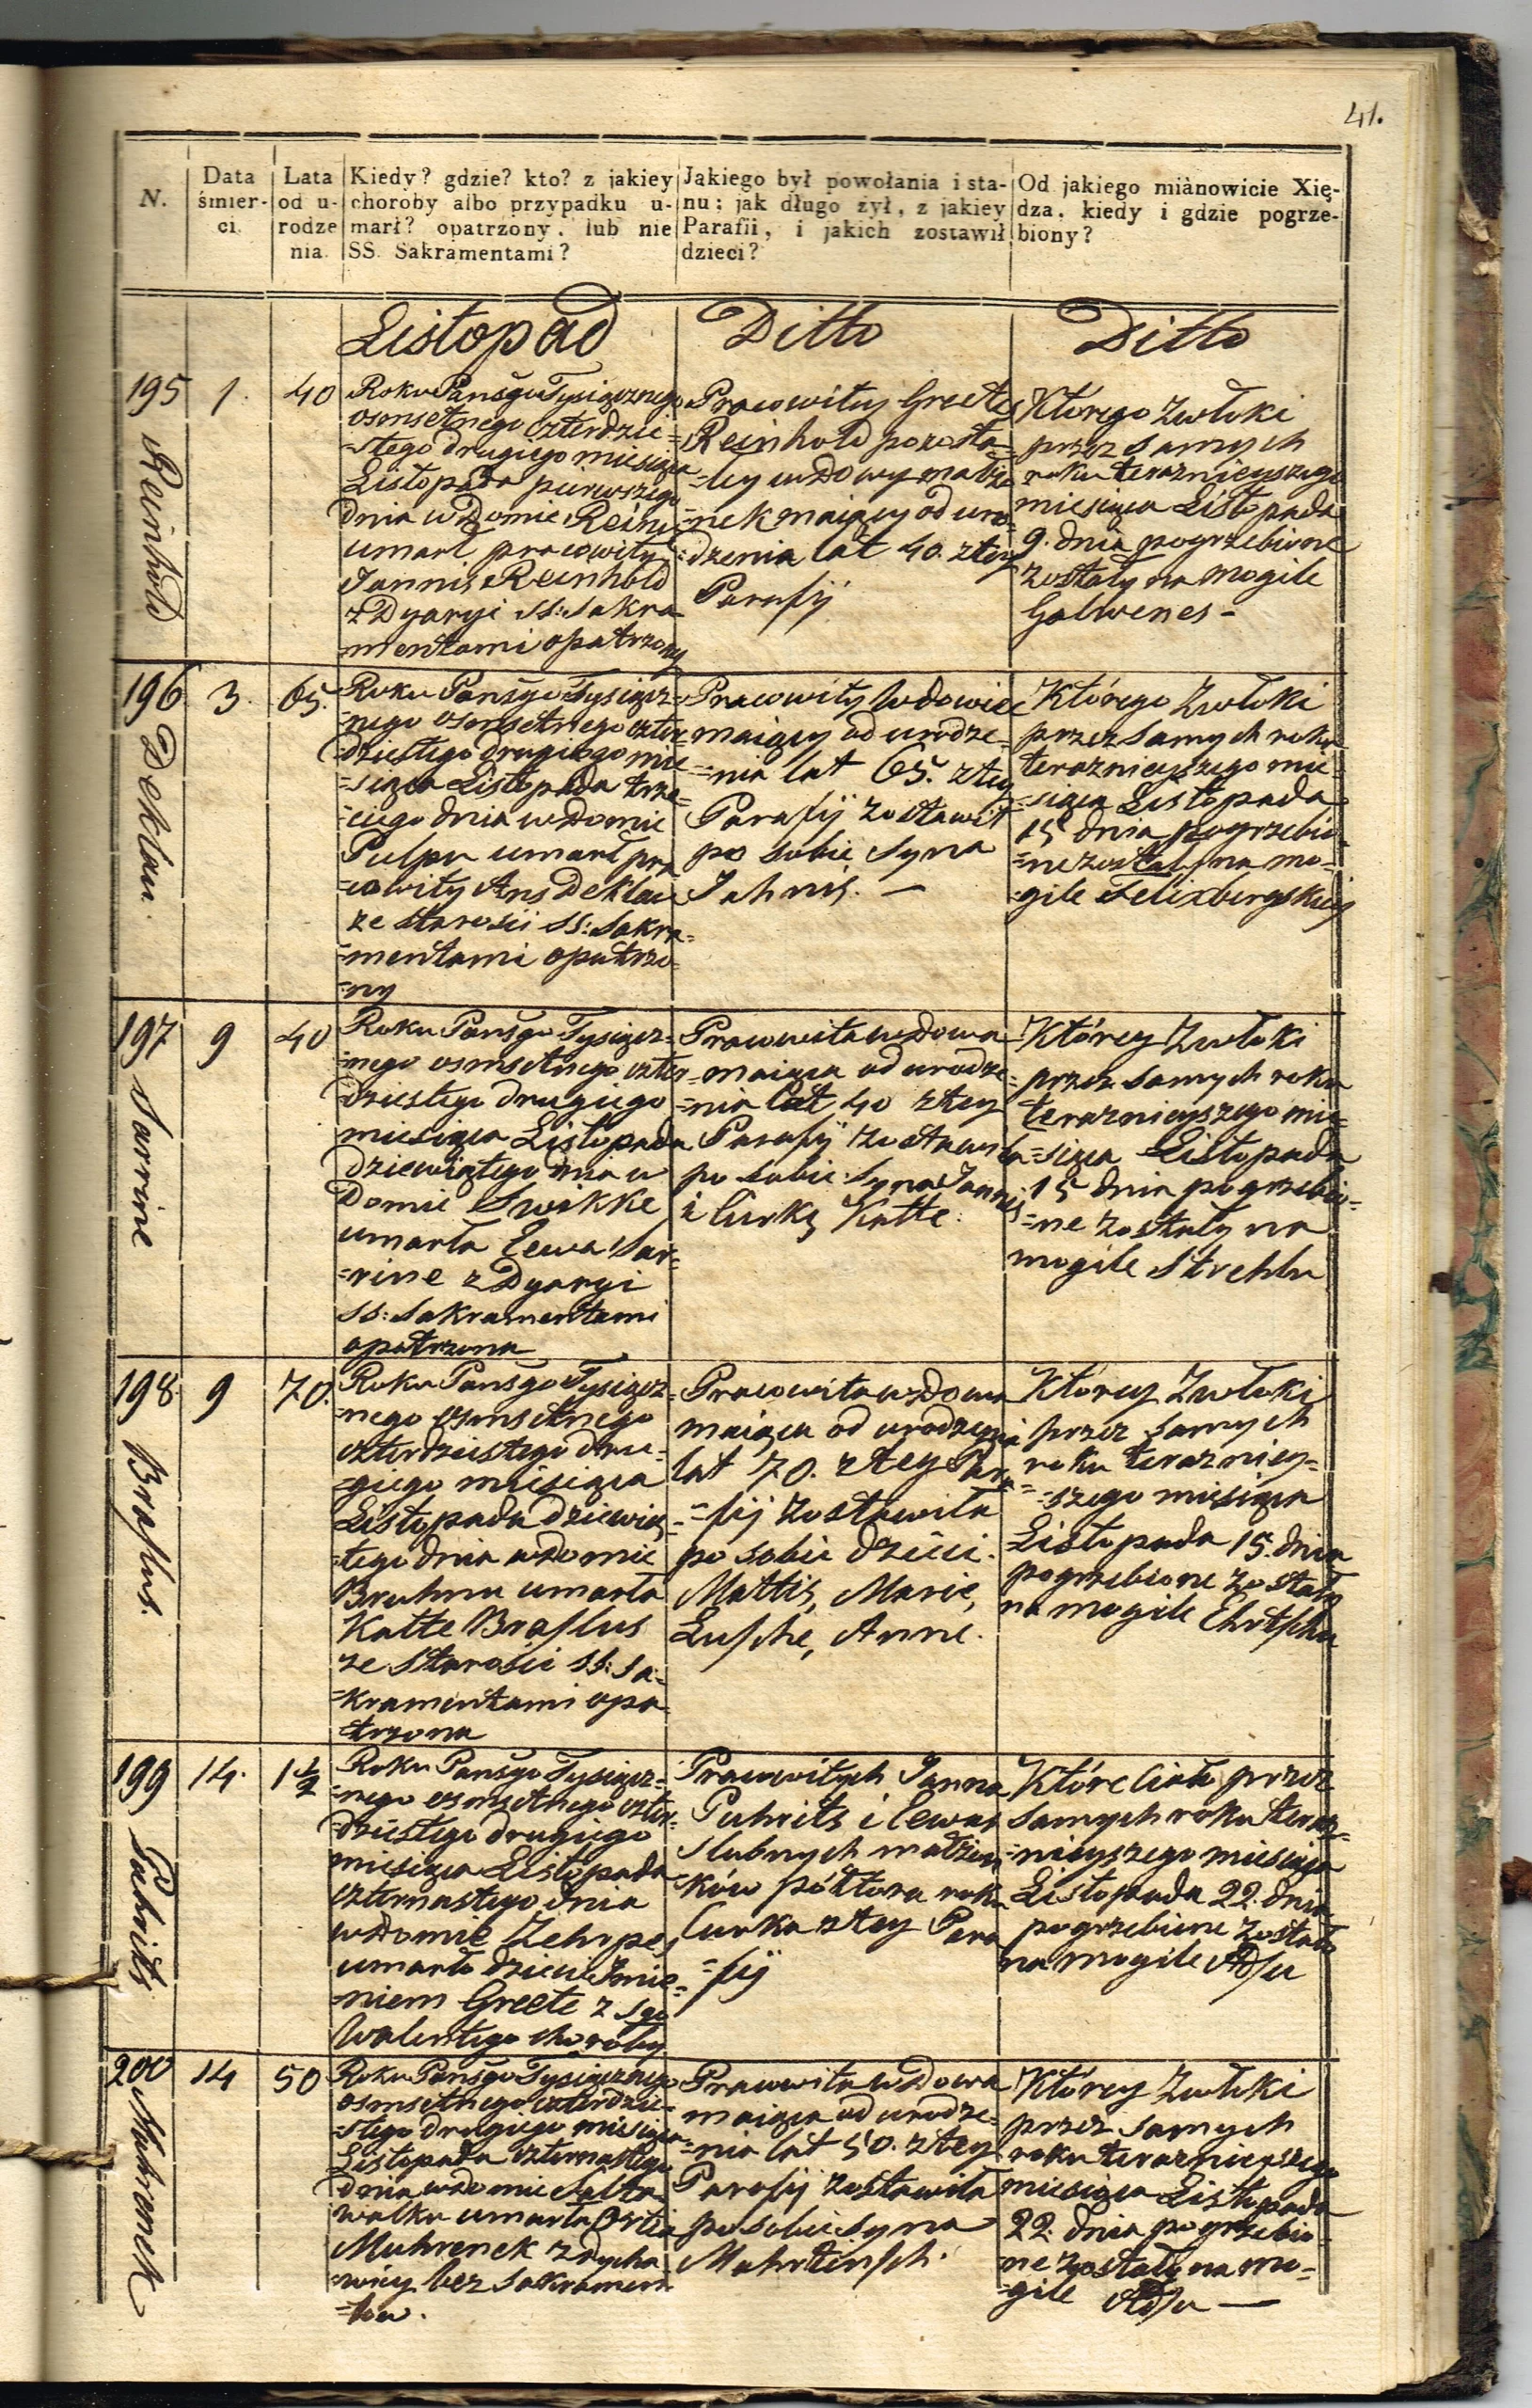 41.
N.
Data
śmier-
ci.
Lata
od u-
rodze
nia.
Kiedy? gdzie? kto? z jakiey
choroby albo przypadku u-
marł? opatrzony, lub nie
SS. Sakramentami?
Jakiego był powołania i sta-
nu; jak długo żył, z jakiey
Parafii, i jakich zostawił
dzieci?
Od jakiego mianowicie Xię-
dza, kiedy i gdzie pogrze-
biony?
Listopad
Ditto
Ditto
195
Reinhold
1.
40
Roku Pańsgo Tysiącznego
osmsetnego czterdzie=
=stego drugiego miesiąca
Listopada pierwszego
dnia w Domie Rein
umarł pracowity
Jannis Reinhold
z Dyaryi SS: Sakra
=mentami opatrzony
Pracowity Greetes
Reinhold pozosta=
=ły wdowy małżo
=nek maiący od uro=
=dzenia lat 40. z tey
Parafij
Którego Zwłoki
przez samych
roku teraznieyszego
miesiąca Listopada
9. dnia pogrzebione
zostały na mogile
Galwenes -
196.
Deklau.
3.
65.
Roku Pańsgo Tysiącz=
=nego osmsetnego czter=
dziestego drugiego mie
=siąca Listopada trze=
=ciego dnia w Domie
Pulpu umarł pra
=cowity Ans Deklau
ze starości SS: Sakra=
=mentami opatrzo=
=ny
Pracowity Wdowiec
maiący od urodze=
=nia lat 65. z tey
Parafij zostawił
po sobie Syna
Jahnis. —
Którego Zwłoki
przez samych roku
teraznieyszego mie=
=siąca Listopada
15 dnia pogrzebio
=ne zostały na mo=
=gile Felixbergskiey
197
Sarrine
9
40
Roku Pańsgo Tysiącz=
=nego osmsetnego czter=
dziestego drugiego
miesiąca Listopada
dziewiątego dnia w
Domie Swikke
umarła Eewa Sar=
=rine z Dyaryi
SS: Sakramentami
opatrzona
Pracowita wdowa
maiąca od urodze=
=nia lat 40 z tey
Parafij zostawiła
po sobie Syna Jannis
i Curkę Katte.
Którey Zwłoki
przez samych roku
teraznieyszego mie=
=siąca Listopada
15 dnia pogrzebio=
=ne zostały na
mogile Strehlu
198.
Braslus.
9
70.
Roku Pańsgo Tysiącz=
=nego osmsetnego
czterdziestego dru=
=giego miesiąca
Listopada dziewią=
=tego dnia w domie
Bruhnu umarła
Katte Braslus
ze starości SS: Sa=
=kramentami opa
trzona
Pracowita wdowa
maiąca od urodzenia
lat 70. z tey Para=
=fij zostawiła
po sobie dzieci.
Mattis, Marie,
Lusche, Anne.
Którey Zwłoki
przez samych
roku teraźniey=
=szego miesiąca
Listopada 15. dnia
pogrzebione zostały
na mogile Ehrtschu
199
Puhrits
14.
1½
Roku Pańsgo Tysiącz=
=nego osmsetnego czter=
dziestego drugiego
miesiąca Listopada
czternastego dnia
w domie Zehrpes
umarło dziecie Imie=
=niem Greete z Sgo
Walentego choroby
Pracowitych Janna
Puhrits i Eewas
slubnych małżon
=ków półtora roku
Curka z tey Para
=fij
Które ciało przez
samych roku teraz=
=nieyszego miesiąca
Listopada 22. dnia
pogrzebione zostało
na mogile Adsu
200
Muhrenek
14
50
Roku Pańsgo Tysiącznego
osmsetnego czterdzie=
=stego drugiego miesiąca
Listopada czternastego
dnia w domie Salta
walku umarła
Muhrenek z dycha
=wicy bez Sakramen
=tu.
Pracowita wdowa
maiąca od urodze=
=nia lat 50. z tey
Parafij zostawiła
po sobie syna
Mahrtinsch.
Którey Zwłoki
przez samych
roku teraznieyszego
miesiąca Listopada
22. dnia pogrzebio=
=ne zostały na mo=
=gile Adsu —